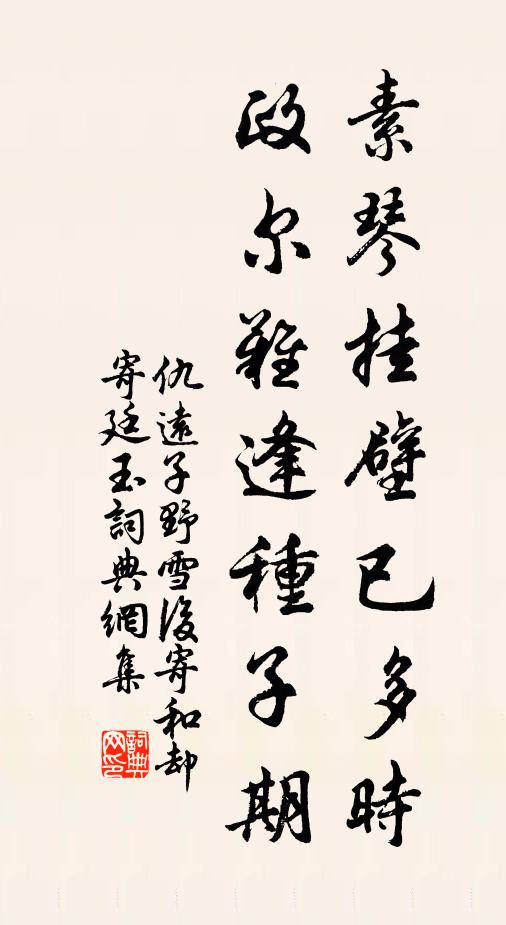 素琴挂壁已多時
政尔難逢種子期
仇遠子野雪後寄和却
寄廷玉詞典網集
詞典网印